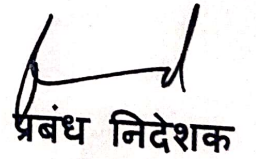 प्रबंध निदेशक